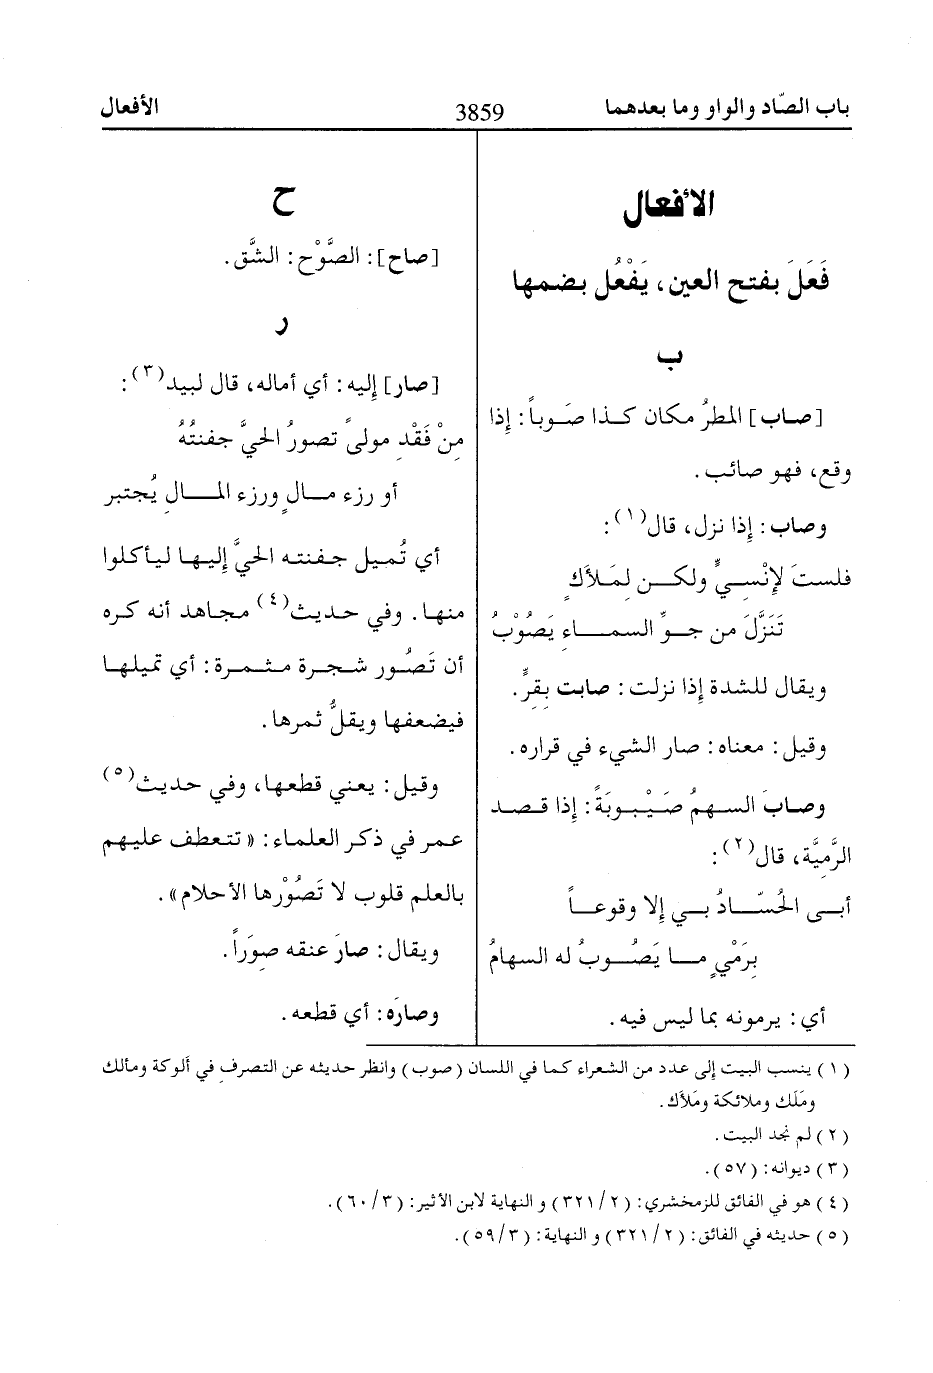 باب الصّاد والواو وما بعدهما 3859 الأفعال
الأفعال
فَعَلَ بفتح العين، يَفْعُل بضمها
ب
[صاب] المطرُ مكان كذا صَوباً: إذا
وقع، فهو صائب.
وصاب: إذا نزل، قال(١):
فلستَ لإنْسِيٍّ ولكن لمَلأكٍ
تَنَزَّلَ من جوِّ السماءِ يَصُوْبُ
ويقال للشدة إذا نزلت: صابت بِقِرٍّ.
وقيل: معناه: صار الشيء في قراره.
وصابَ السهمُ صَيْبوبَةً: إذا قصد
الرَّمِيَّة، قال(٢):
أبى الحُسّادُ بي إلا وقوعاً
بِرَمْيٍ ما يَصُوبُ له السهامُ
أي: يرمونه بما ليس فيه.
ح
[صاح]: الصَّوْح: الشَّق.
ر
[صار] إليه: أي أماله، قال لبيد(٣):
مِنْ فَقْدِ مولىً تصورُ الحيَّ جفنتُهُ
أو رزء مالٍ ورزء المالِ يُجتبر
أي تُميل جفنته الحيَّ إليها ليأكلوا
منها. وفي حديث(٤) مجاهد أنه كره
أن تَصُور شجرة مثمرة: أي تميلها
فيضعفها ويقلُّ ثمرها.
وقيل: يعني قطعها، وفي حديث(٥)
عمر في ذكر العلماء: «تتعطف عليهم
بالعلم قلوب لا تَصُوْرها الأحلام».
ويقال: صارَ عنقه صوَراً.
وصارَه: أي قطعه.
(١) ينسب البيت إلى عدد من الشعراء كما في اللسان (صوب) وانظر حديثه عن التصرف في ألوكة ومألك
ومَلَك وملائكة وملأك.
(٢) لم نجد البيت.
(٣) ديوانه: (٥٧).
(٤) هو في الفائق للزمخشري: (٣٢١/٢) و النهاية لابن الأثير: (٦٠/٣).
(٥) حديثه في الفائق: (٣٢١/٢) و النهاية: (٥٩/٣).